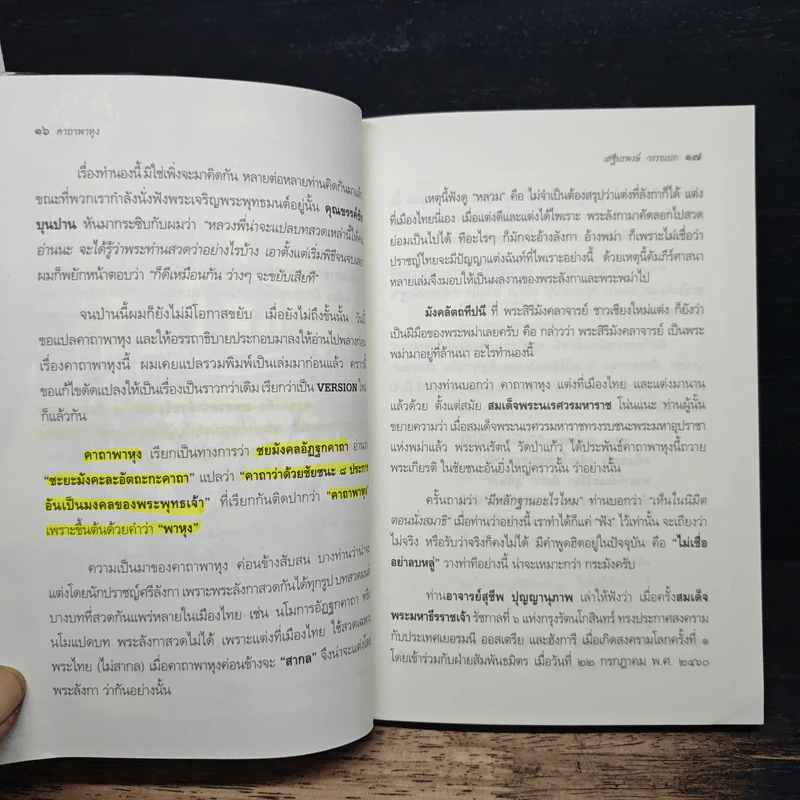 ๑๖ คาถาพาหุง
เรื่องทำนองนี้ มิใช่เพิ่งจะมาคิดกัน หลายต่อหลายท่านคิดกันมาแล้ว
ขณะที่พวกเรากำลังนั่งฟังพระเจริญพระพุทธมนต์อยู่นั้น คุณขรรค์ชัย
บุนปาน หันมากระซิบกับผมว่า “หลวงพี่น่าจะแปลบทสวดเหล่านี้ให้คน
อ่านนะ จะได้รู้ว่าพระท่านสวดว่าอย่างไรบ้าง เอาตั้งแต่เริ่มพิธีจนจบเลย”
ผมก็พยักหน้าตอบว่า “ก็ดีเหมือนกัน ว่างๆ จะขยับเสียที”
จนป่านนี้ผมก็ยังไม่มีโอกาสขยับ เมื่อยังไม่ถึงขั้นนั้น วันนี้
ขอแปลคาถาพาหุง และให้อรรถาธิบายประกอบมาลงให้อ่านไปพลางก่อน
เรื่องคาถาพาหุงนี้ ผมเคยแปลรวมพิมพ์เป็นเล่มมาก่อนแล้ว คราวนี้
ขอแก้ไขดัดแปลงให้เป็นเรื่องเป็นราวกว่าเดิม เรียกว่าเป็น VERSION ใหม่
ก็แล้วกัน
คาถาพาหุง เรียกเป็นทางการว่า ชยมังคลอัฏฐกคาถา อ่านว่า
“ชะยะมังคะละอัตถะกะคาถา” แปลว่า “คาถาว่าด้วยชัยชนะ ๘ ประการ
อันเป็นมงคลของพระพุทธเจ้า” ที่เรียกกันติดปากว่า “คาถาพาหุง”
เพราะขึ้นต้นด้วยคำว่า “พาหุง”
ความเป็นมาของคาถาพาหุง ค่อนข้างสับสน บางท่านว่าน่าจะ
แต่งโดยนักปราชญ์ศรีลังกา เพราะพระลังกาสวดกันได้ทุกรูป บทสวดมนต์
บางบทที่สวดกันแพร่หลายในเมืองไทย เช่น นโมการอัฏฐกคาถา หรือ
นโมแปดบท พระลังกาสวดไม่ได้ เพราะแต่งที่เมืองไทย ใช้สวดเฉพาะ
พระไทย (ไม่สากล) เมื่อคาถาพาหุงค่อนข้างจะ “สากล” จึงน่าจะแต่งโดย
พระลังกา ว่ากันอย่างนั้น
เสฐียรพงษ์ วรรณปก ๑๗
เหตุนี้ฟังดู “หลวม” คือ ไม่จำเป็นต้องสรุปว่าแต่งที่ลังกาก็ได้ แต่ง
ที่เมืองไทยนี่เอง เมื่อแต่งดีและแต่งได้ไพเราะ พระลังกามาคัดลอกไปสวด
ย่อมเป็นไปได้ ทีอะไรๆ ก็มักจะอ้างลังกา อ้างพม่า ก็เพราะไม่เชื่อว่า
ปราชญ์ไทยจะมีปัญญาแต่งฉันท์ที่ไพเราะอย่างนี้ ด้วยเหตุนี้คัมภีร์ศาสนา
หลายเล่มจึงมอบให้เป็นผลงานของพระลังกาและพระพม่าไป
มังคลัตถทีปนี ที่ พระสิริมังคลาจารย์ ชาวเชียงใหม่แต่ง ก็ยังว่า
เป็นฝีมือของพระพม่าเลยครับ คือ กล่าวว่า พระสิริมังคลาจารย์ เป็นพระ
พม่ามาอยู่ที่ล้านนา อะไรทำนองนี้
บางท่านบอกว่า คาถาพาหุง แต่งที่เมืองไทย และแต่งมานาน
แล้วด้วย ตั้งแต่สมัย สมเด็จพระนเรศวรมหาราช โน่นแนะ ท่านผู้นั้น
ขยายความว่า เมื่อสมเด็จพระนเรศวรมหาราชทรงรบชนะพระมหาอุปราชา
แห่งพม่าแล้ว พระพนรัตน์ วัดป่าแก้ว ได้ประพันธ์คาถาพาหุงนี้ถวาย
พระเกียรติ ในชัยชนะอันยิ่งใหญ่คราวนั้น ว่าอย่างนั้น
ครั้นถามว่า “มีหลักฐานอะไรไหม” ท่านบอกว่า “เห็นในนิมิต
ตอนนั่งสมาธิ” เมื่อท่านว่าอย่างนี้ เราทำได้ก็แค่ “ฟัง” ไว้เท่านั้น จะเถียงว่า
ไม่จริง หรือรับว่าจริงก็คงไม่ได้ มีคำพูดฮิตอยู่ในปัจจุบัน คือ “ไม่เชื่อ
อย่าลบหลู่” วางท่าทีอย่างนี้ น่าจะเหมาะกว่า กระมังครับ
ท่านอาจารย์สุชีพ ปุญญานุภาพ เล่าให้ฟังว่า เมื่อครั้งสมเด็จ
พระมหาธีรราชเจ้า รัชกาลที่ ๖ แห่งกรุงรัตนโกสินทร์ ทรงประกาศสงคราม
กับประเทศเยอรมนี ออสเตรีย และฮังการี เมื่อเกิดสงครามโลกครั้งที่ ๑
โดยเข้าร่วมกับฝ่ายสัมพันธมิตร เมื่อวันที่ ๒๒ กรกฎาคม พ.ศ. ๒๔๖๐